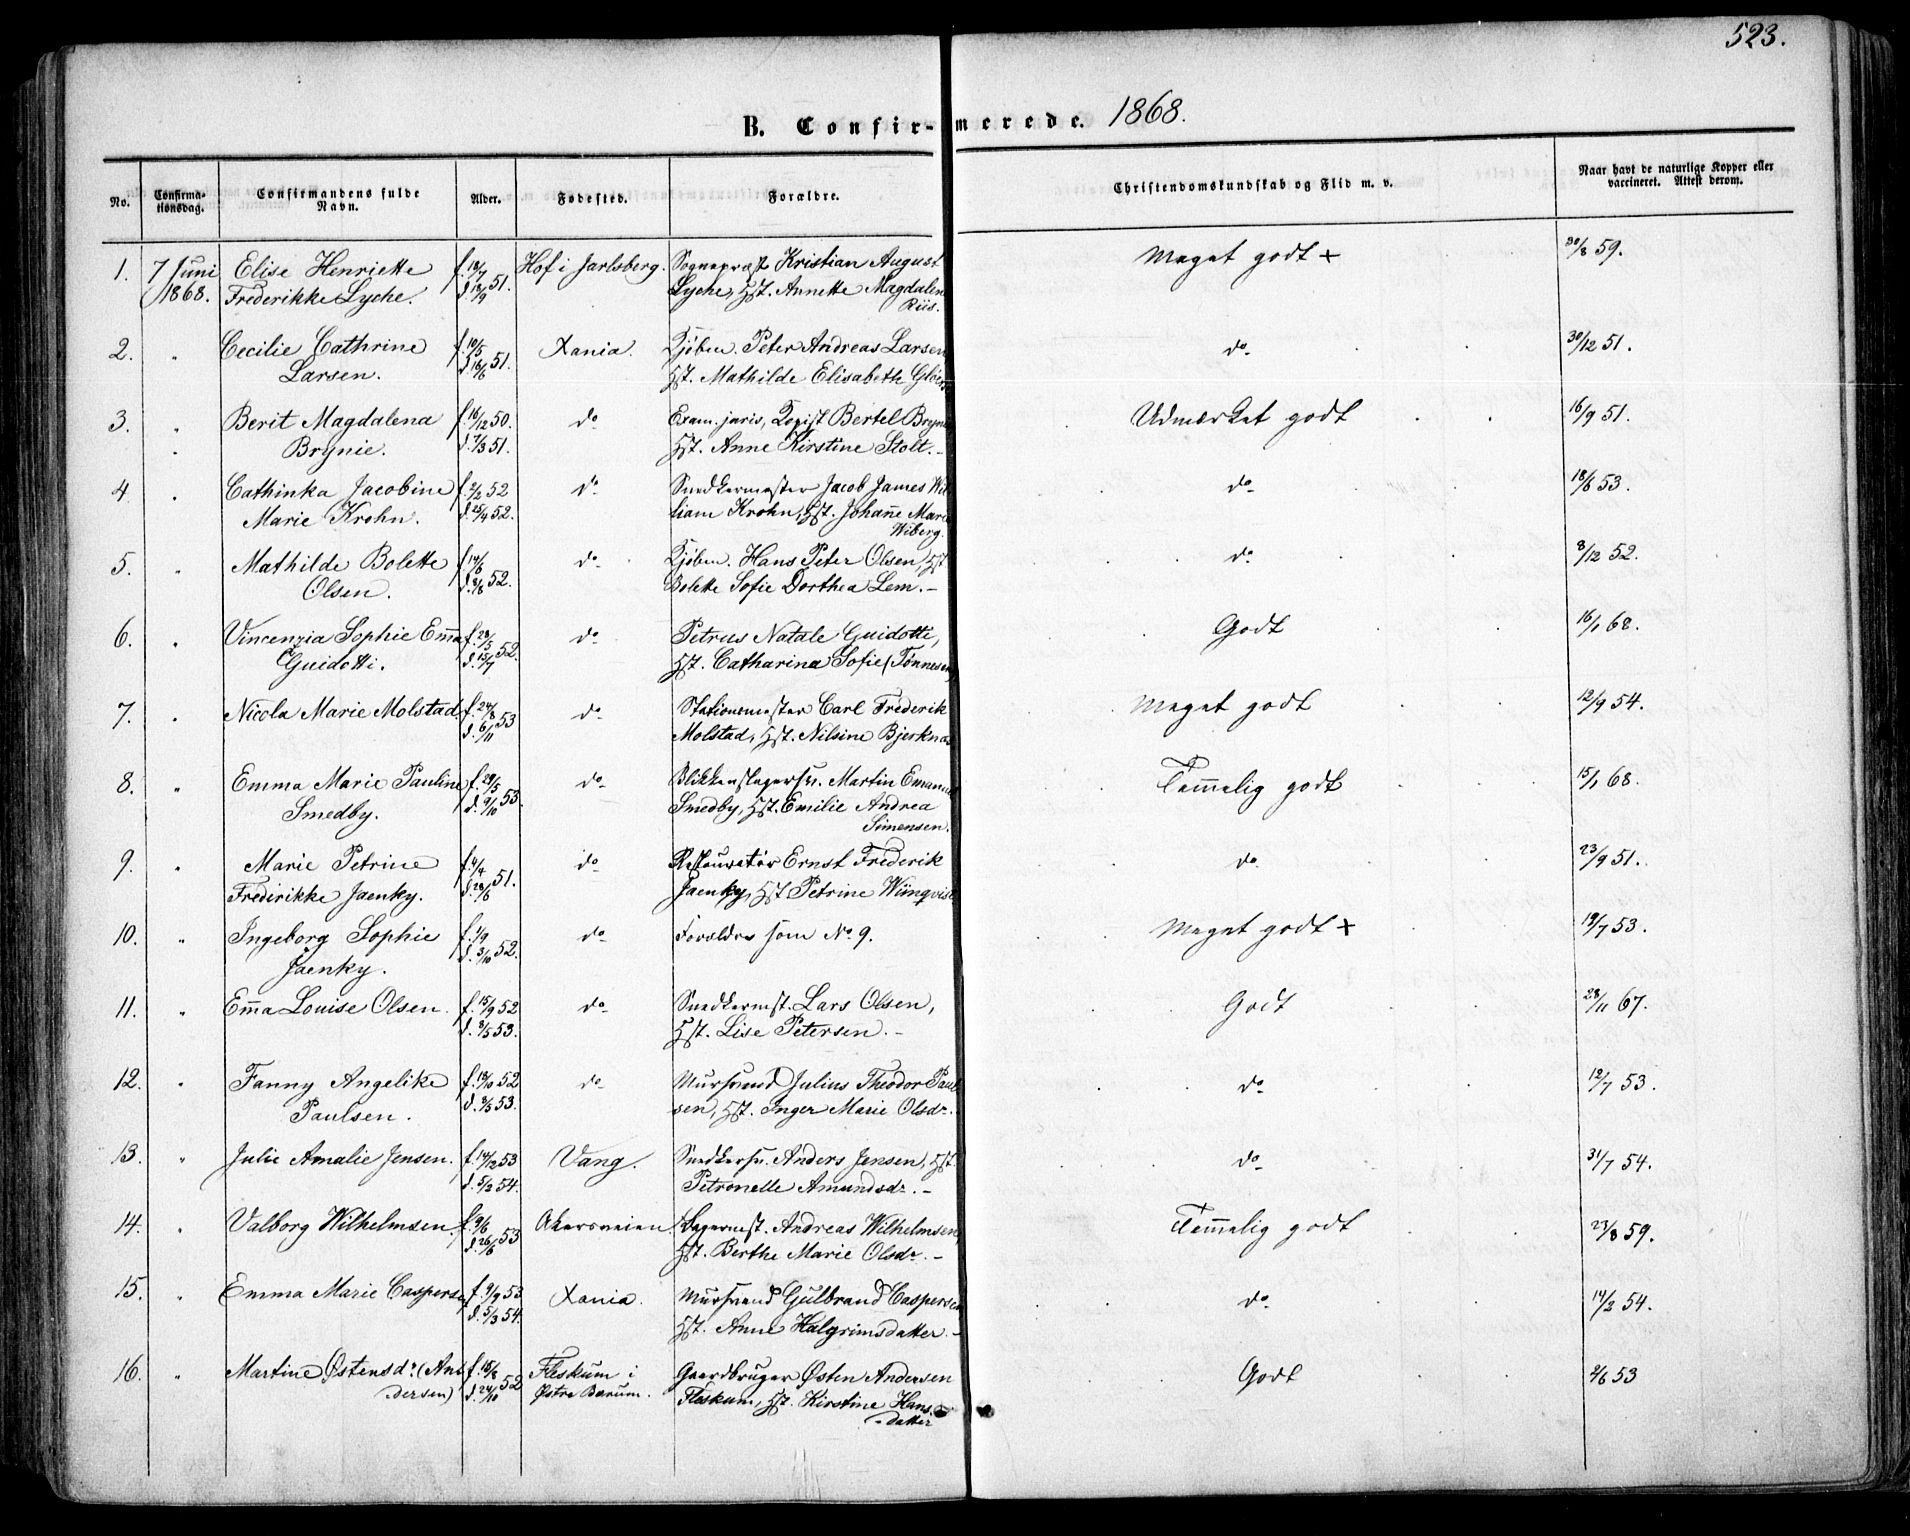 523.
B. Confirmerede. 1868.
No. Confirmationsdag. Confirmandens fulde Navn. Alder. Fødested. Forældre. Christendomskundskab og Flid m. v. Naar havt de naturlige Kopper eller vaccineret. Attest derom.
1. 7 Juni Elise Henriette f. 18/7 Hof i Jarlsberg. Sognepræst Kristian August Meget godt + 30/8 59.
1868. Frederikke Lyche. d. 18/9 51. Lyche, Hst. Annette Magdalene
Riis.
2. " Cecilie Cathrine f. 10/5 Xania. Kjøbm. Peter Andreas Larsen do 30/12 51.
Larsen. d. 18/6 51. Hst. Mathilde Elisabeth
3. " Berit Magdalena f. 16/12 50. do Exam. juris, Kopist Bertel Brynie Udmærket godt 16/9 51.
" Brynie. d. 7/3 51. Hst. Anne Kirstine Stolt. -
4. " Cathinka Jacobine f. 2/2 52 do Snedkermester Jacob James Wil do 18/6 53.
Marie Krohn. d. 25/4 52. liam Krohn, Hst. Johanne Marie
Wiberg.
5. " Mathilde Bolette f. 14/6 do Kjøbm. Hans Peter Olsen, Hst do 8/12 52.
Olsen. d. 8/8 52. Bolette Sofie Dorthea Lem. -
6. " Vincenzia Sophie Emma f. 23/5 do Petrus Natale Guidotti, Godt 16/1 68.
Guidotti. d. 15/7 52. Hst. Catharina Sofie Tønnesen
7. " Nicola Marie Molstad. f. 24/8 do Stationsmester Carl Frederik Meget godt 12/9 54.
d. 6/11 53 Molstad, Hst. Nilsine Bjerknæs
8. " Emma Marie Pauline f. 29/5 do Blikkenslagersv. Martin Emanuel Temmelig godt 15/1 68.
Smedby. d. 9/10 53. Smedby, Hst. Emilie Andrea
Simensen.
9. " Marie Petrine f. 4/4 do Restauratør Ernst Frederik do 23/9 51.
Frederikke Jaenky. d. 28/6 51. Jaenky, Hst Petrine Wünqvist
10. " Ingeborg Sophie f. 1/9 do Forældre som No 9. Meget godt + 19/7 53.
Jaenky. d. 3/10 52.
11. " Emma Louise Olsen. f. 15/9 52 do Snedkermst. Lars Olsen, Godt 28/11 67.
d. 8/5 53. Hst. Lise Petersen. -
12. " Fanny Angelike f. 18/10 52 do Mursvend Julius Theodor Paul do 12/7 53.
Paulsen. d. 8/5 53. sen, Hst. Inger Marie Olsdr.
13. " Julie Amalie Jensen. f. 14/12 53 Vang. Snedkersv. Anders Jensen, Hst. do 31/7 54.
d. 5/2 54. Petronelle Amundsdr. -
14. " Valborg Wilhelmsen. f. 9/6 Akersveien Bagermst. Andreas Wilhelmsen, Temmelig godt 23/8 59.
d. 26/6 53 Hst. Berthe Marie Olsdr. -
15. " Emma Marie Caspersen f. 9/9 53 Xania. Mursvend Gulbrand Caspersen do 14/2 54.
d. 5/3 54. Hst. Anne Halgrimsdatter. -
16. " Martine Østensdr. (An f. 15/8 Fleskum i Gaardbruger Østen Andersen Godt 2/6 53
dersen) d. 24/10 52 Østre Bærum. Fleskum, Hst. Kirstine Hans
datter